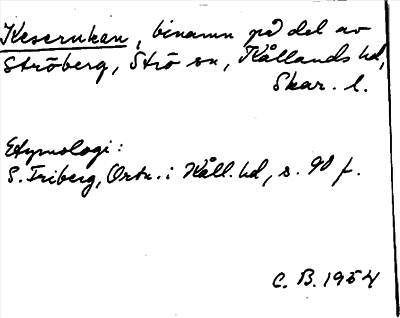 Keserukan, binamn på del av
Ströberg, Strö sn, Kållands hd,
Skar. l.
Etymologi:
S. Friberg, Ortn. i Kåll. hd, s. 90 f.
C. B. 1954